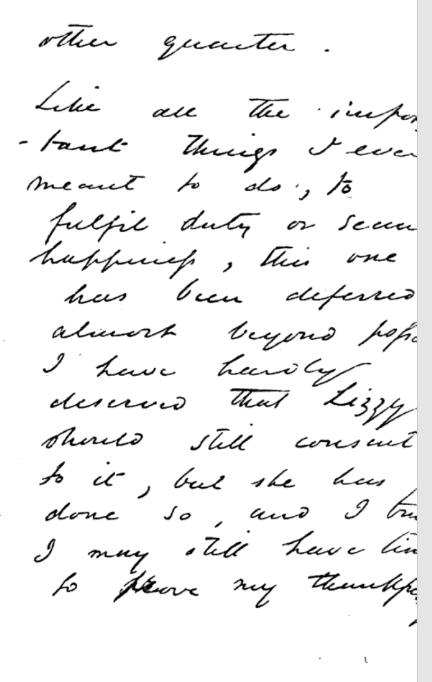 other quarter.
Like all the impor
-tant things I ever
meant to do, to
fulfil duty or secu
happiness, this one
has been deferred
almost beyond poss
I have hardly
deserved that Lizzy
should still consent
to it, but she has
done so, and I tru
I may still have tim
to prove my thankf